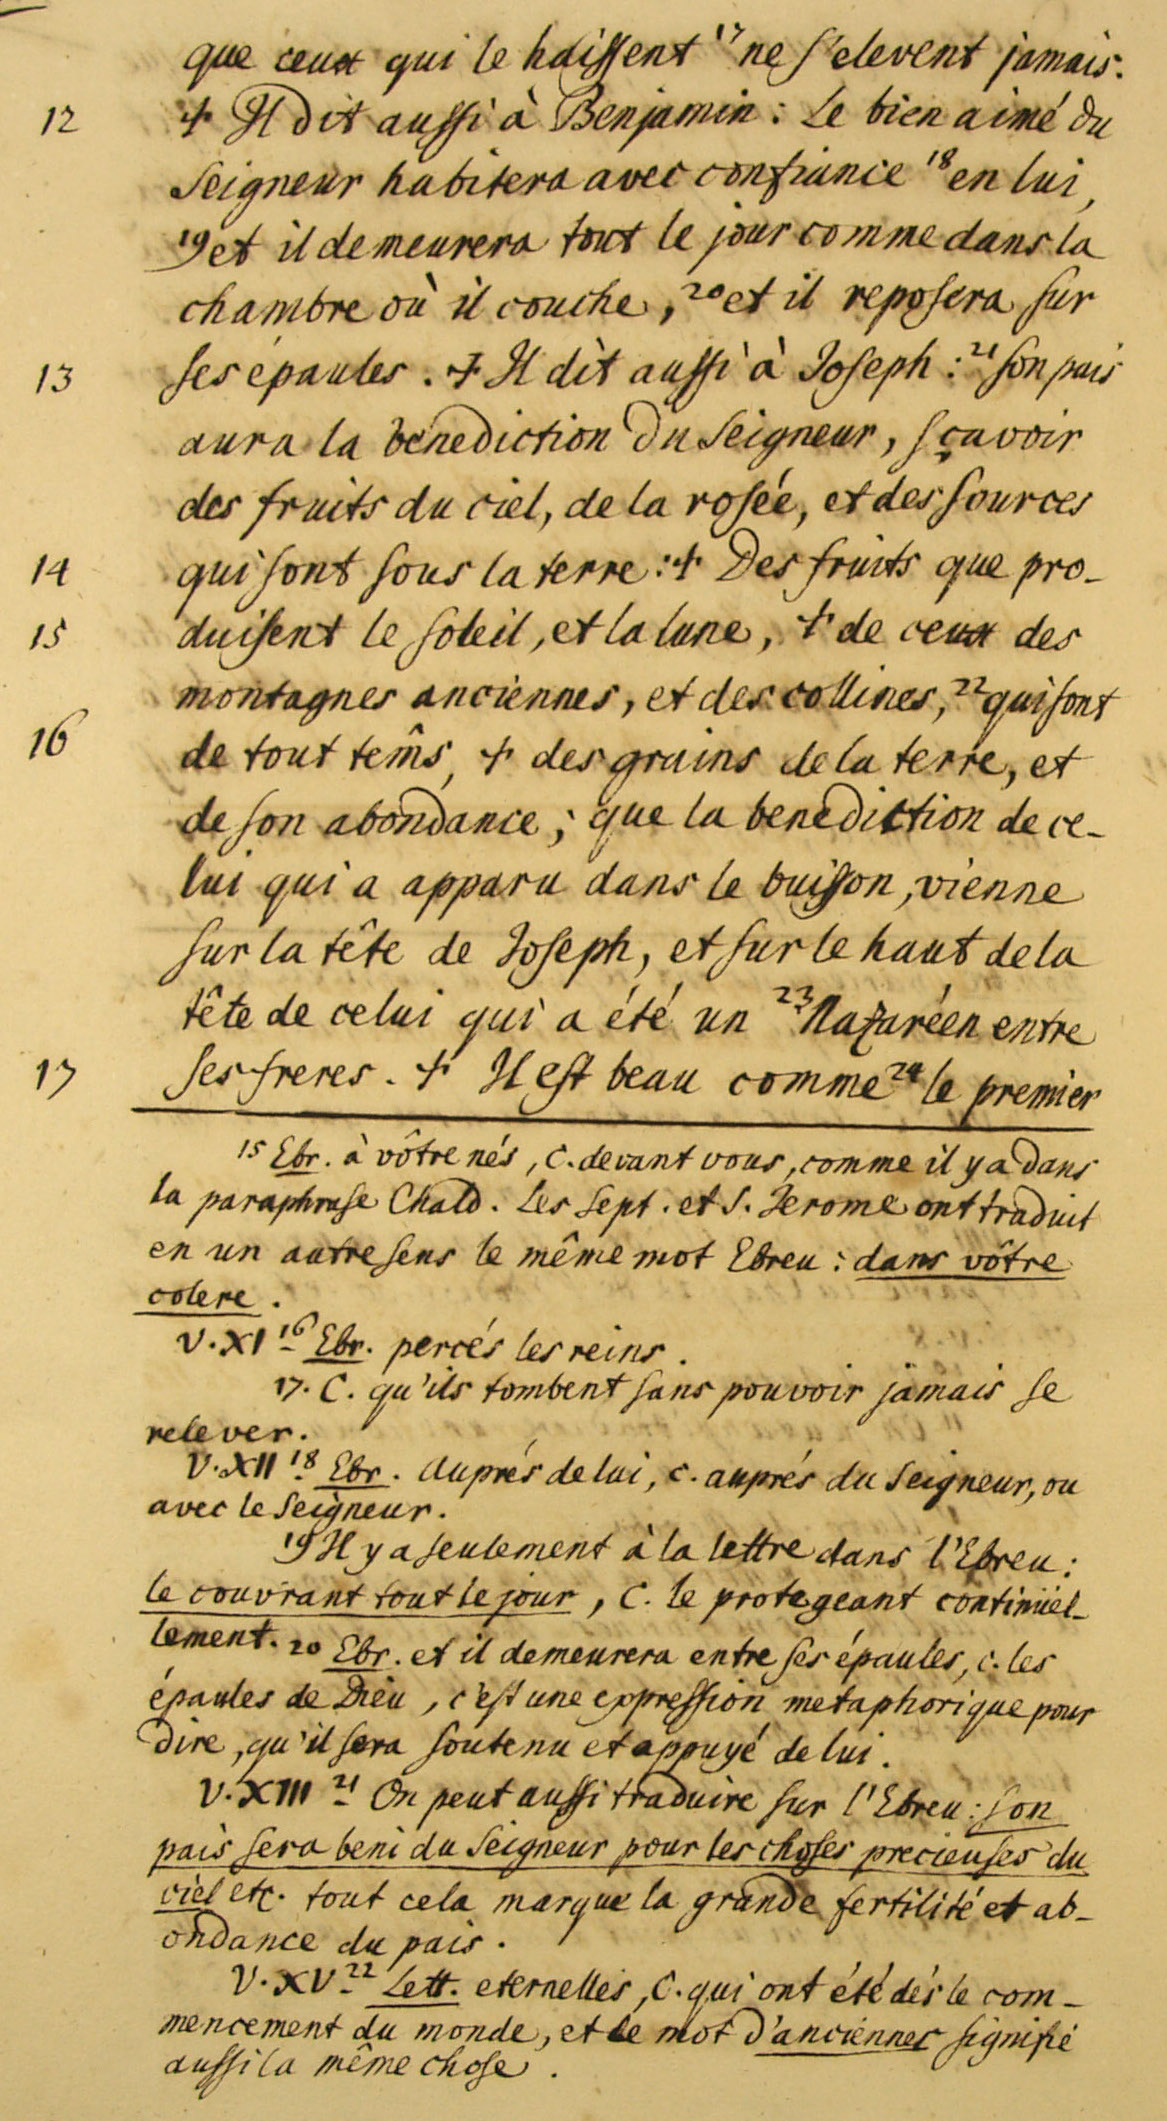 que ceux qui le haissent 17 ne s'elevent jamais.
12 + Il dit aussi à Benjamin : Le bien aimé du
Seigneur habitera avec confiance 18 en lui,
19 et il demeurera tout le jour comme dans la
chambre où il couche, 20 et il reposera sur
13 ses épaules. + Il dit aussi à Joseph : 21 son païs
aura la benediction du Seigneur, sçavoir
des fruits du ciel, de la rosée, et des sources
14 qui sont sous la terre : + Des fruits que pro-
15 duisent le soleil, et la lune, + de ceux des
montagnes anciennes, et des collines, 22 qui sont
16 de tout têms, + des grains de la terre, et
de son abondance ; que la benediction de ce-
lui qui a apparu dans le buisson, vienne
sur la tête de Joseph, et sur le haut de la
tête de celui qui a été un 23 Nazaréen entre
17 ses freres. + Il est beau comme 24 le premier
15 Ebr. à vôtre nés, C. devant vous, comme il y a dans
la paraphrase Chald. Les Sept. et S. Jerome ont traduit
en un autre sens le même mot Ebreu : dans vôtre
colere.
V. XI 16 Ebr. percés les reins.
17. C. qu'ils tombent sans pouvoir jamais se
relever.
V. XII 18 Ebr. Auprés de lui, c. auprés du Seigneur, ou
avec le Seigneur.
19 Il y a seulement à la lettre dans l'Ebreu :
le couvrant tout le jour, C. le protegeant continüel-
lement. 20 Ebr. et il demeurera entre ses épaules, c. les
épaules de Dieu, c'est une expression metaphorique pour
dire, qu'il sera soutenu et appuyé de lui.
V. XIII 21 On peut aussi traduire sur l'Ebreu : son
païs sera beni du Seigneur pour les choses precieuses du
ciel etc. tout cela marque la grande fertilité et ab-
ondance du païs.
V. XV 22 Lett. eternelles, C. qui ont été dés le com-
mencement du monde, et le mot d'anciennes signifie
aussi la même chose.